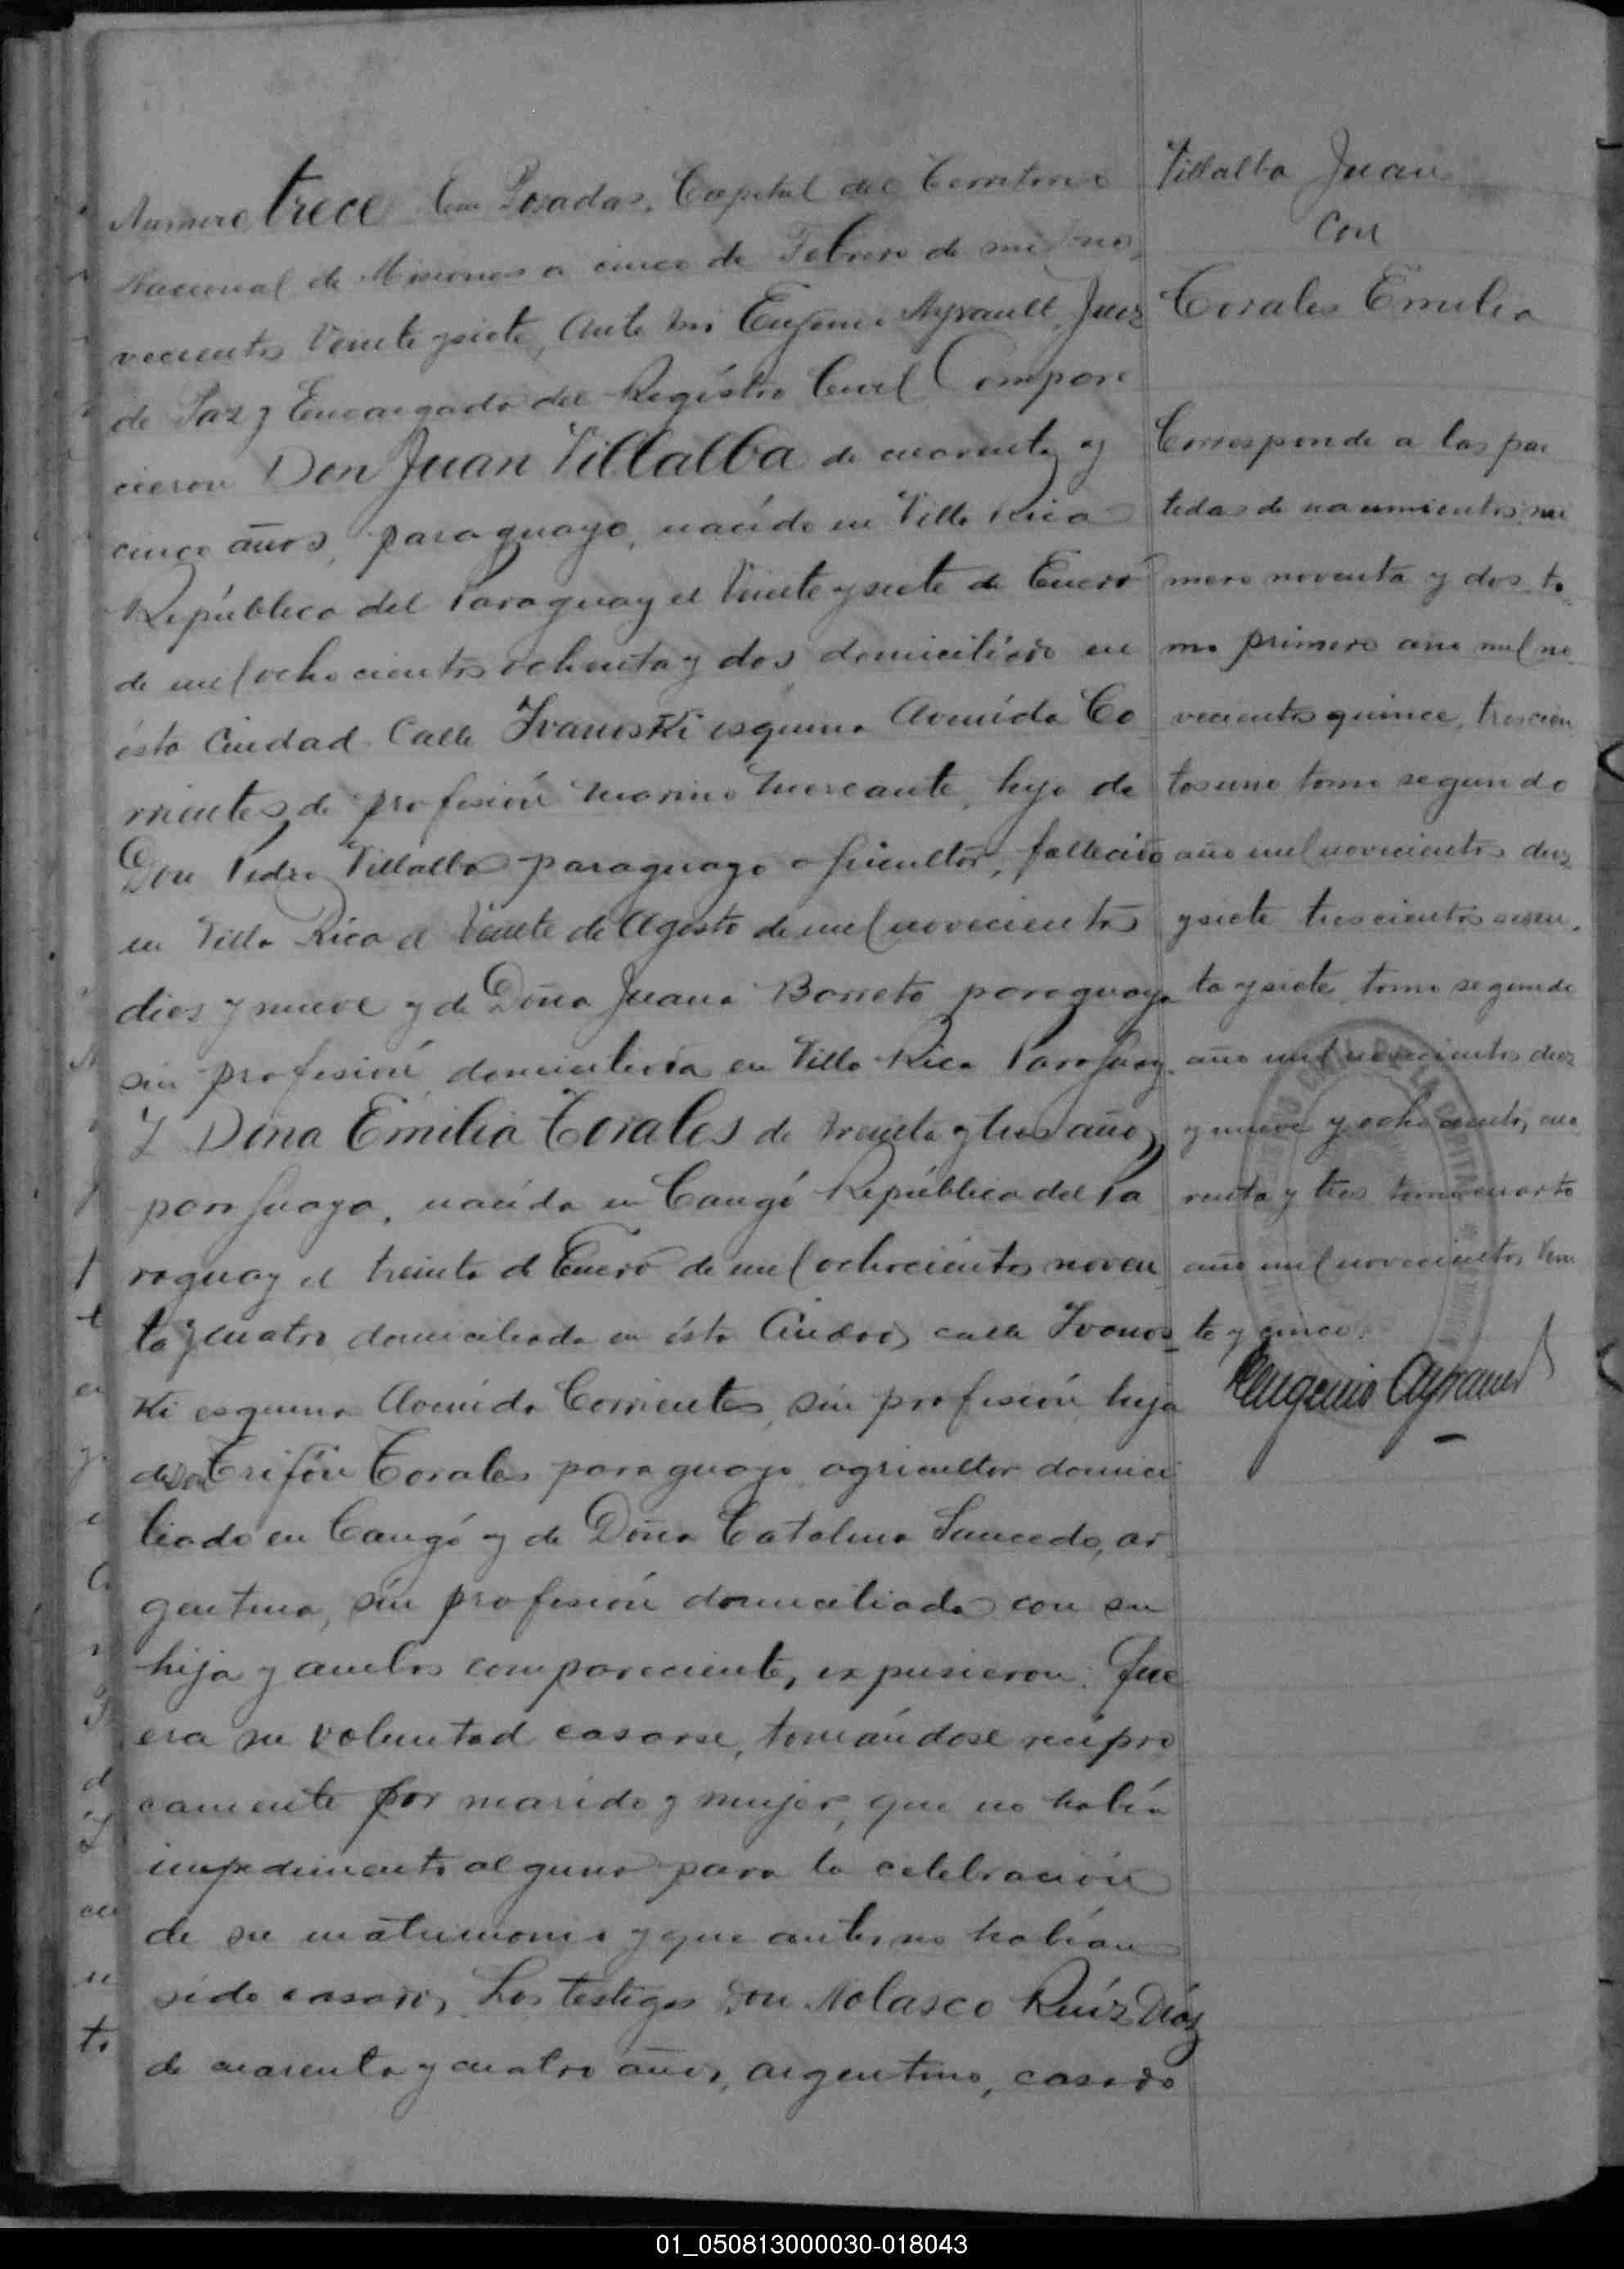 Numero trece En Posadas, Capital del Territorio
Nacional de Misiones a cinco de Febrero de mil no
vecientos Veinte y siete, Ante mi Eugenio Ayrault, Juez
de Paz y Encargado del Registro Civil Compare
cieron Don Juan Villalba de cuarenta y
cinco años, paraguayo, nacido en Villa Rica
República del Paraguay el Veinte y siete de Enero
de mil ochocientos ochenta y dos domiciliado en
ésta Ciudad Calle Ivanoski esquina Avenida Co
rrientes, de profesión marino mercante, hijo de
Don Pedro Villalba paraguayo agricultor, fallecido
en Villa Rica el Veinte de Agosto de mil novecientos
diez y nueve y de Doña Juana Barreto paraguaya
sin profesión domiciliada en Villa Rica Paraguay.
Y Doña Emilia Corales de treinta y tres años,
paraguaya, nacida en Cangó República del Pa
raguay el treinta de Enero de mil ochocientos noven
ta y cuatro domiciliada en ésta Ciudad calle Ivanos
ki esquina Avenida Corrientes, sin profesión, hija
de Don Trifón Corales paraguayo agricultor domici
liado en Cangó y de Doña Catalina Saucedo, ar
gentina, sin profesión domiciliada con su
hija y ambos comparecientes, expusieron: Que
era su voluntad casarse, tomándose recipro
camente por marido y mujer, que no había
impedimento alguno para la celebración
de su matrimonio y que antes no habían
sido casados, Los testigos Don Nolasco Ruíz Díaz
de cuarenta y cuatro años, argentino, casado
Villalba Juan
con
Corales Emilia
Corresponde a las par
tidas de nacimientos, nu
mero noventa y dos to
mo primero año mil no
vecientos quince, trescien
tos uno tomo segundo
año mil novecientos diez
y siete trescientos sesen
ta y siete tomo segundo
año mil novecientos diez
y nueve y ochocientos, cua
renta y tres tomo cuarto
año mil novecientos Vein
te y cinco.
Eugenio Ayrault
01_050813000030-018043